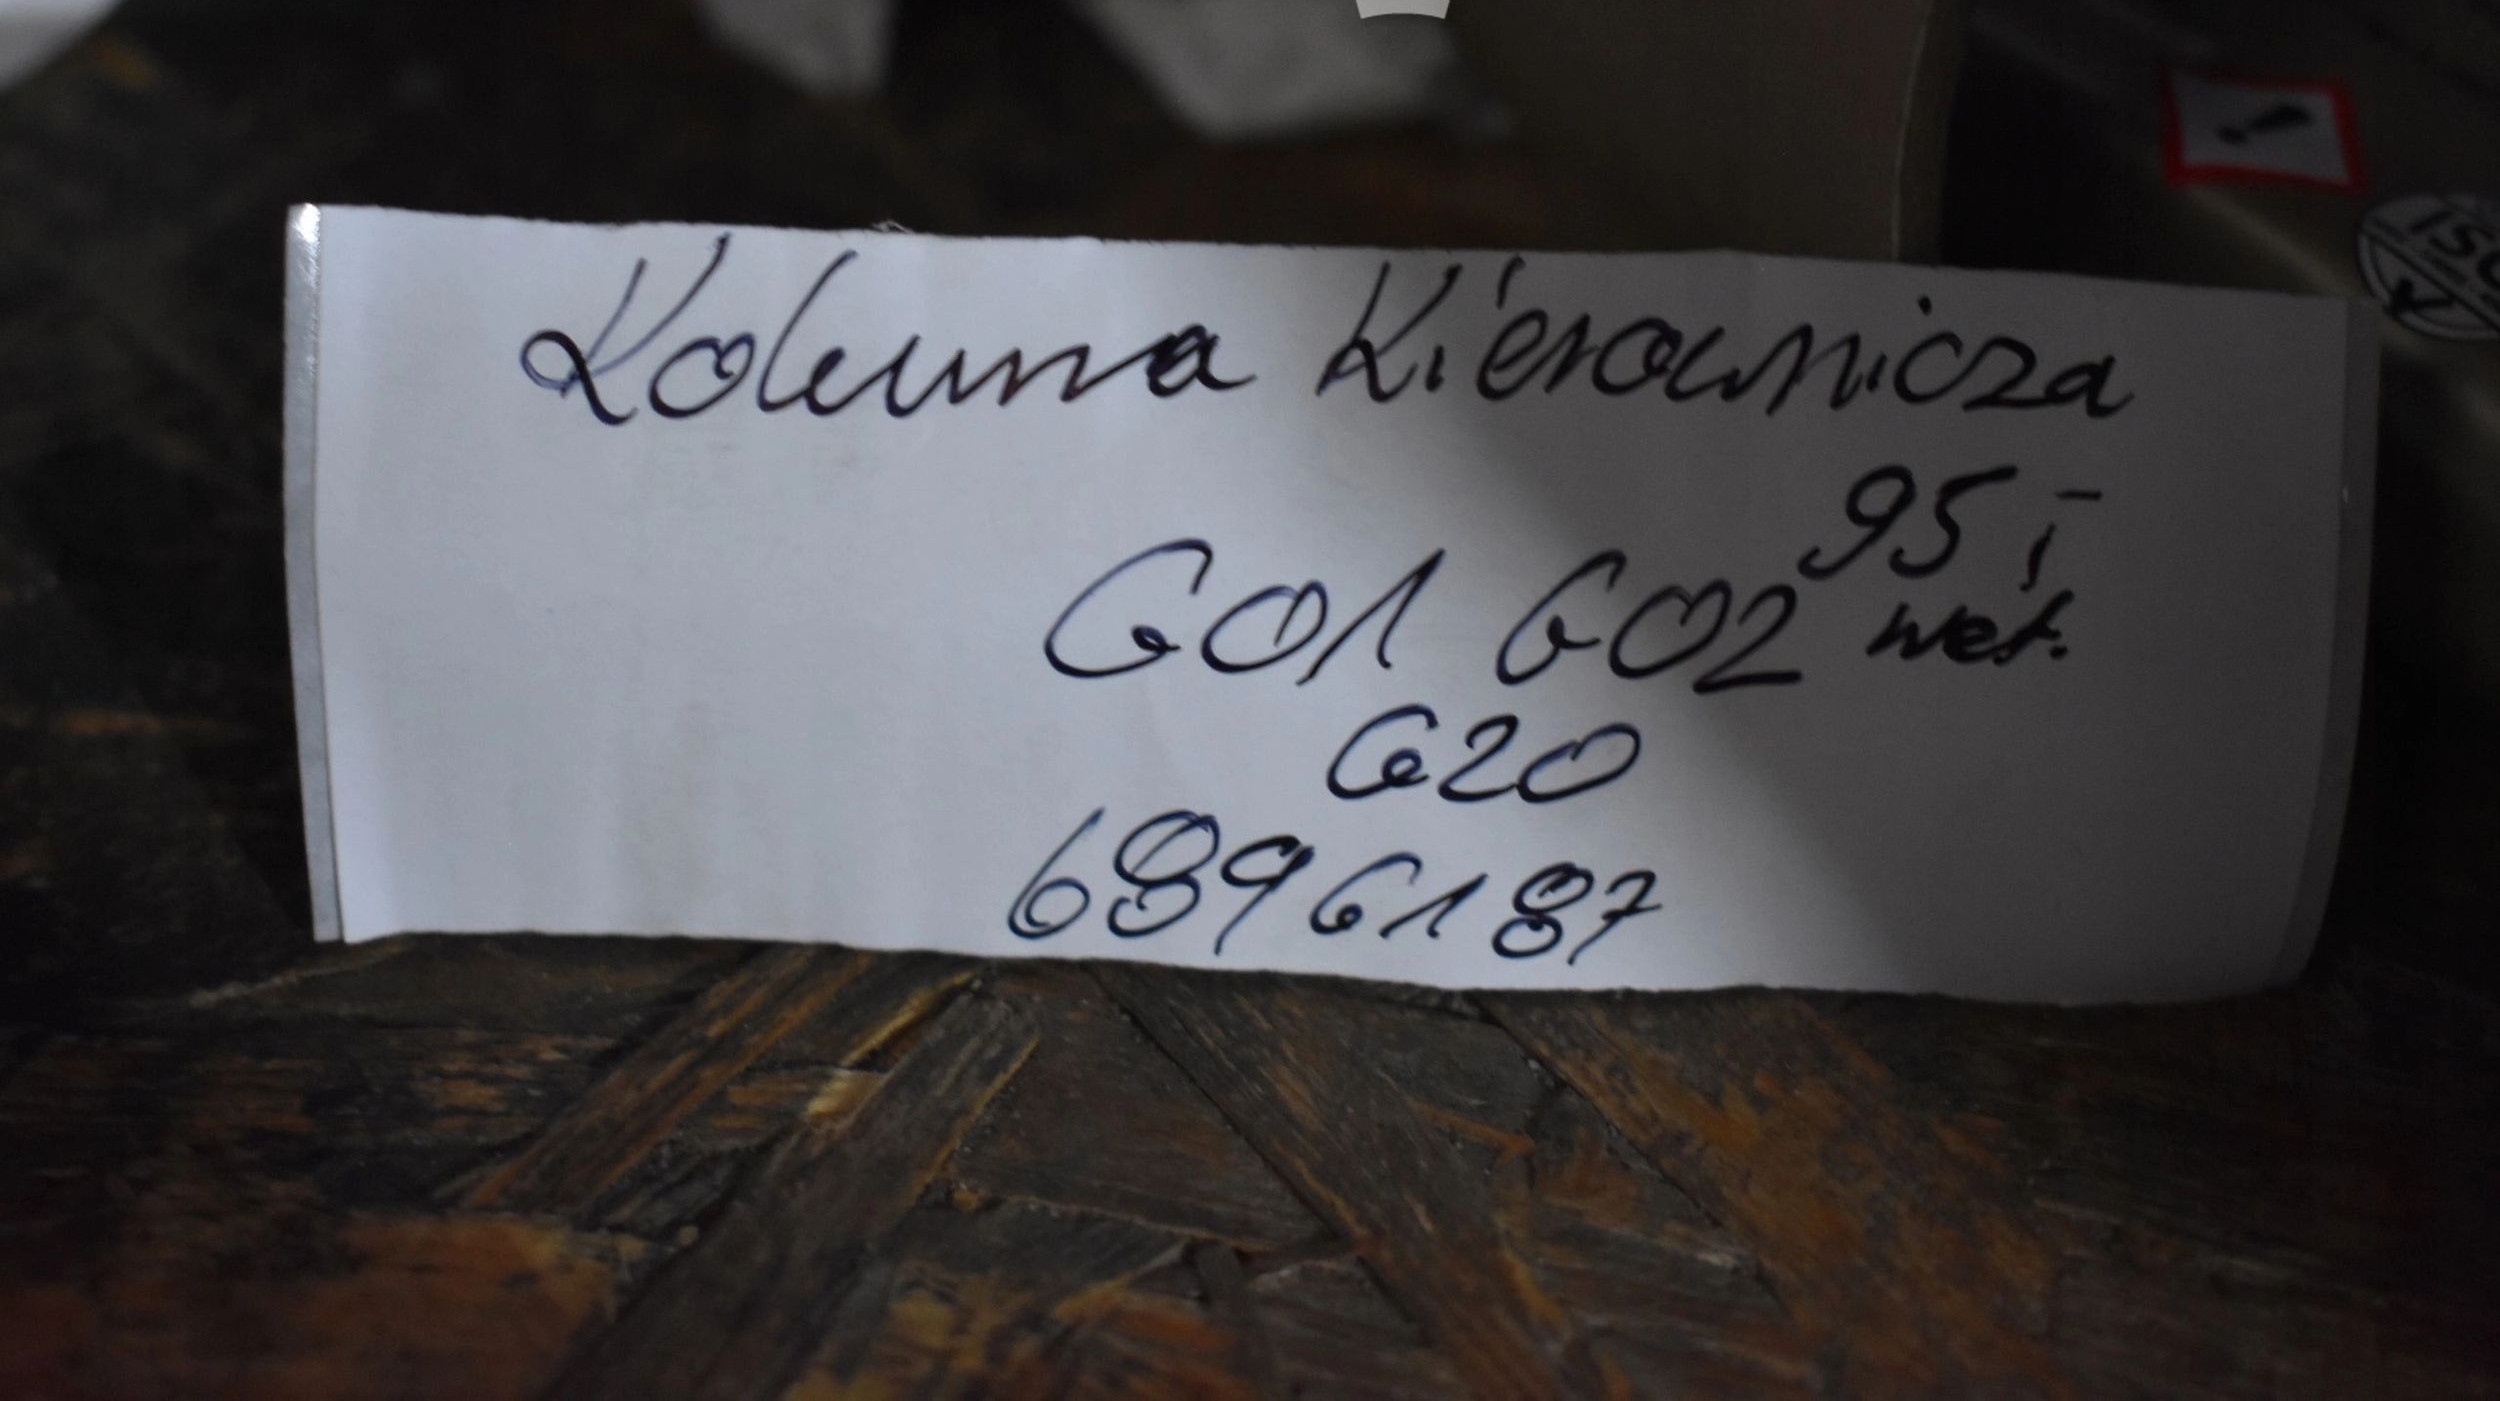 Kolumna Kierownicza
95,-
G01 G02 net.
G20
6896187
ISO